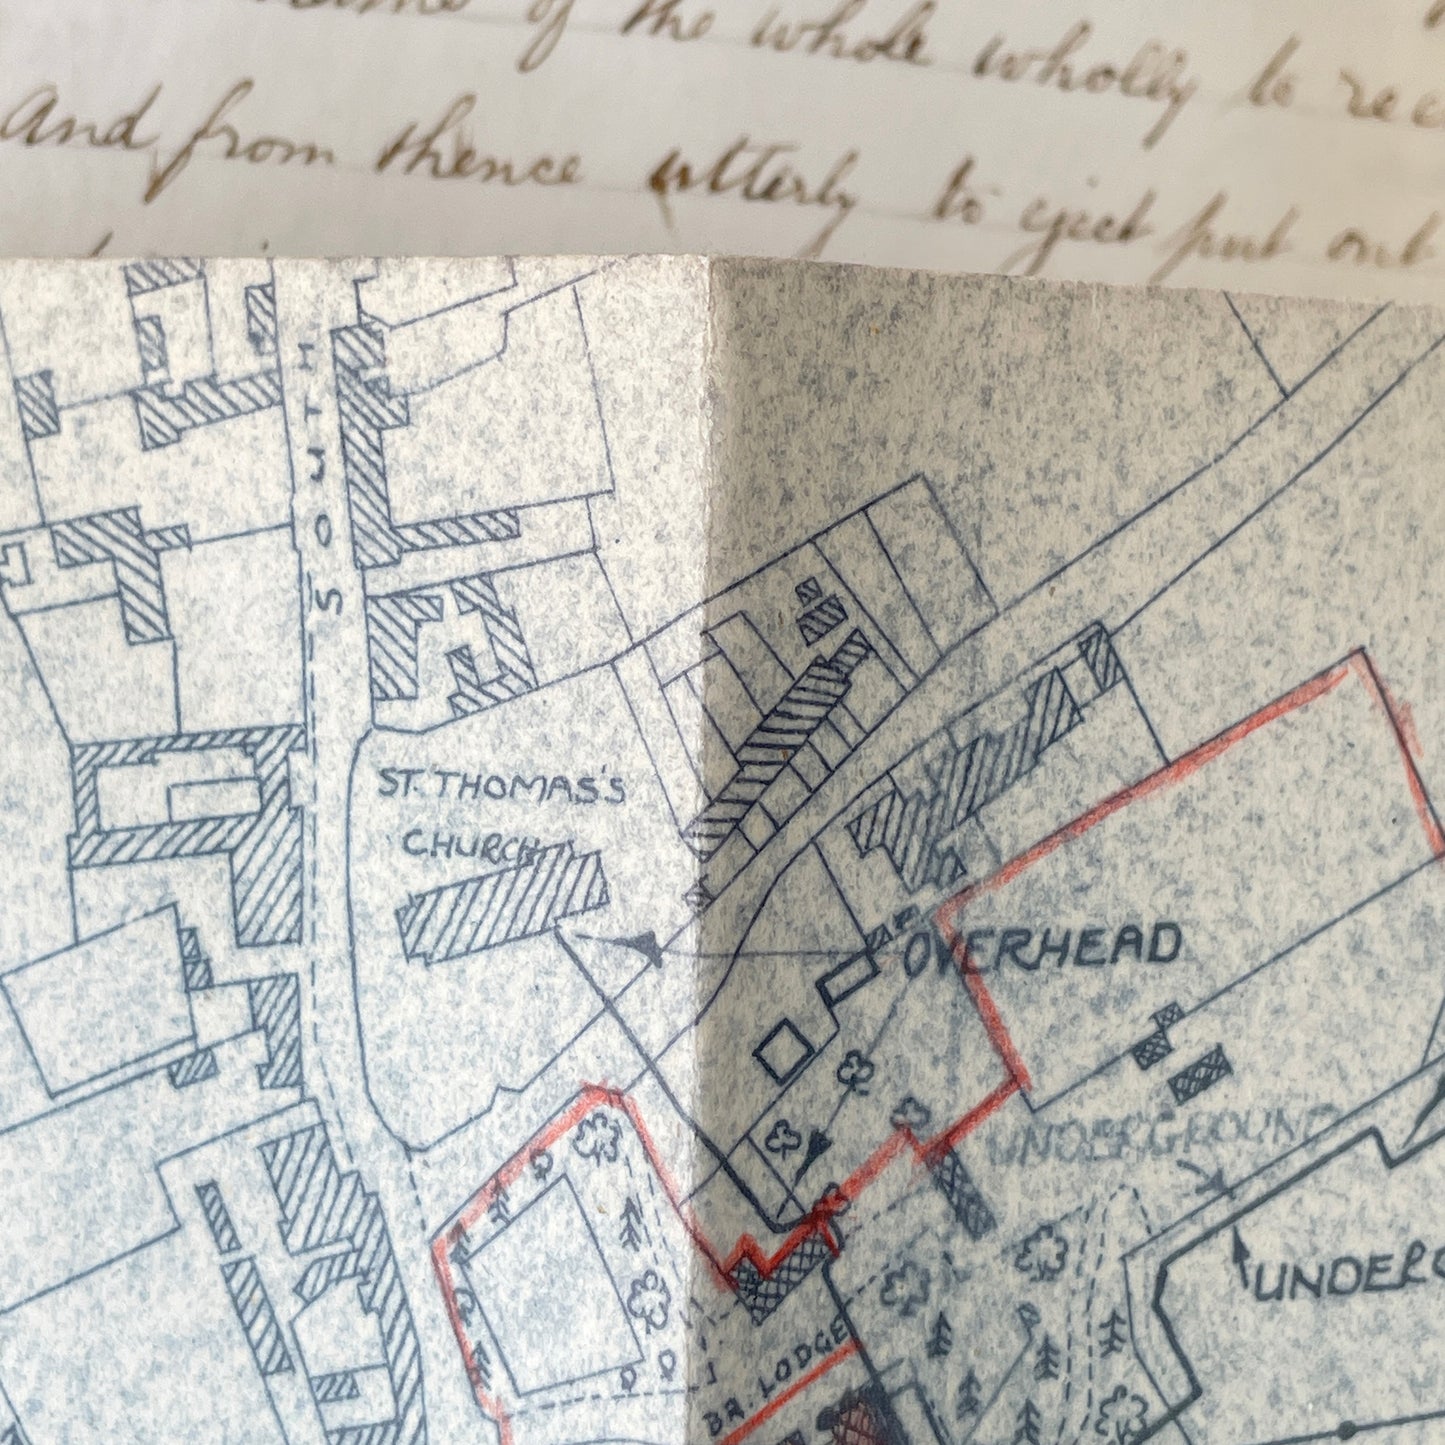 of the whole wholly to
And from thence utterly to eject put out
SOUTH
ST. THOMAS'S
CHURCH
OVERHEAD
UNDERGROUND
UNDERG
BR. LODGE